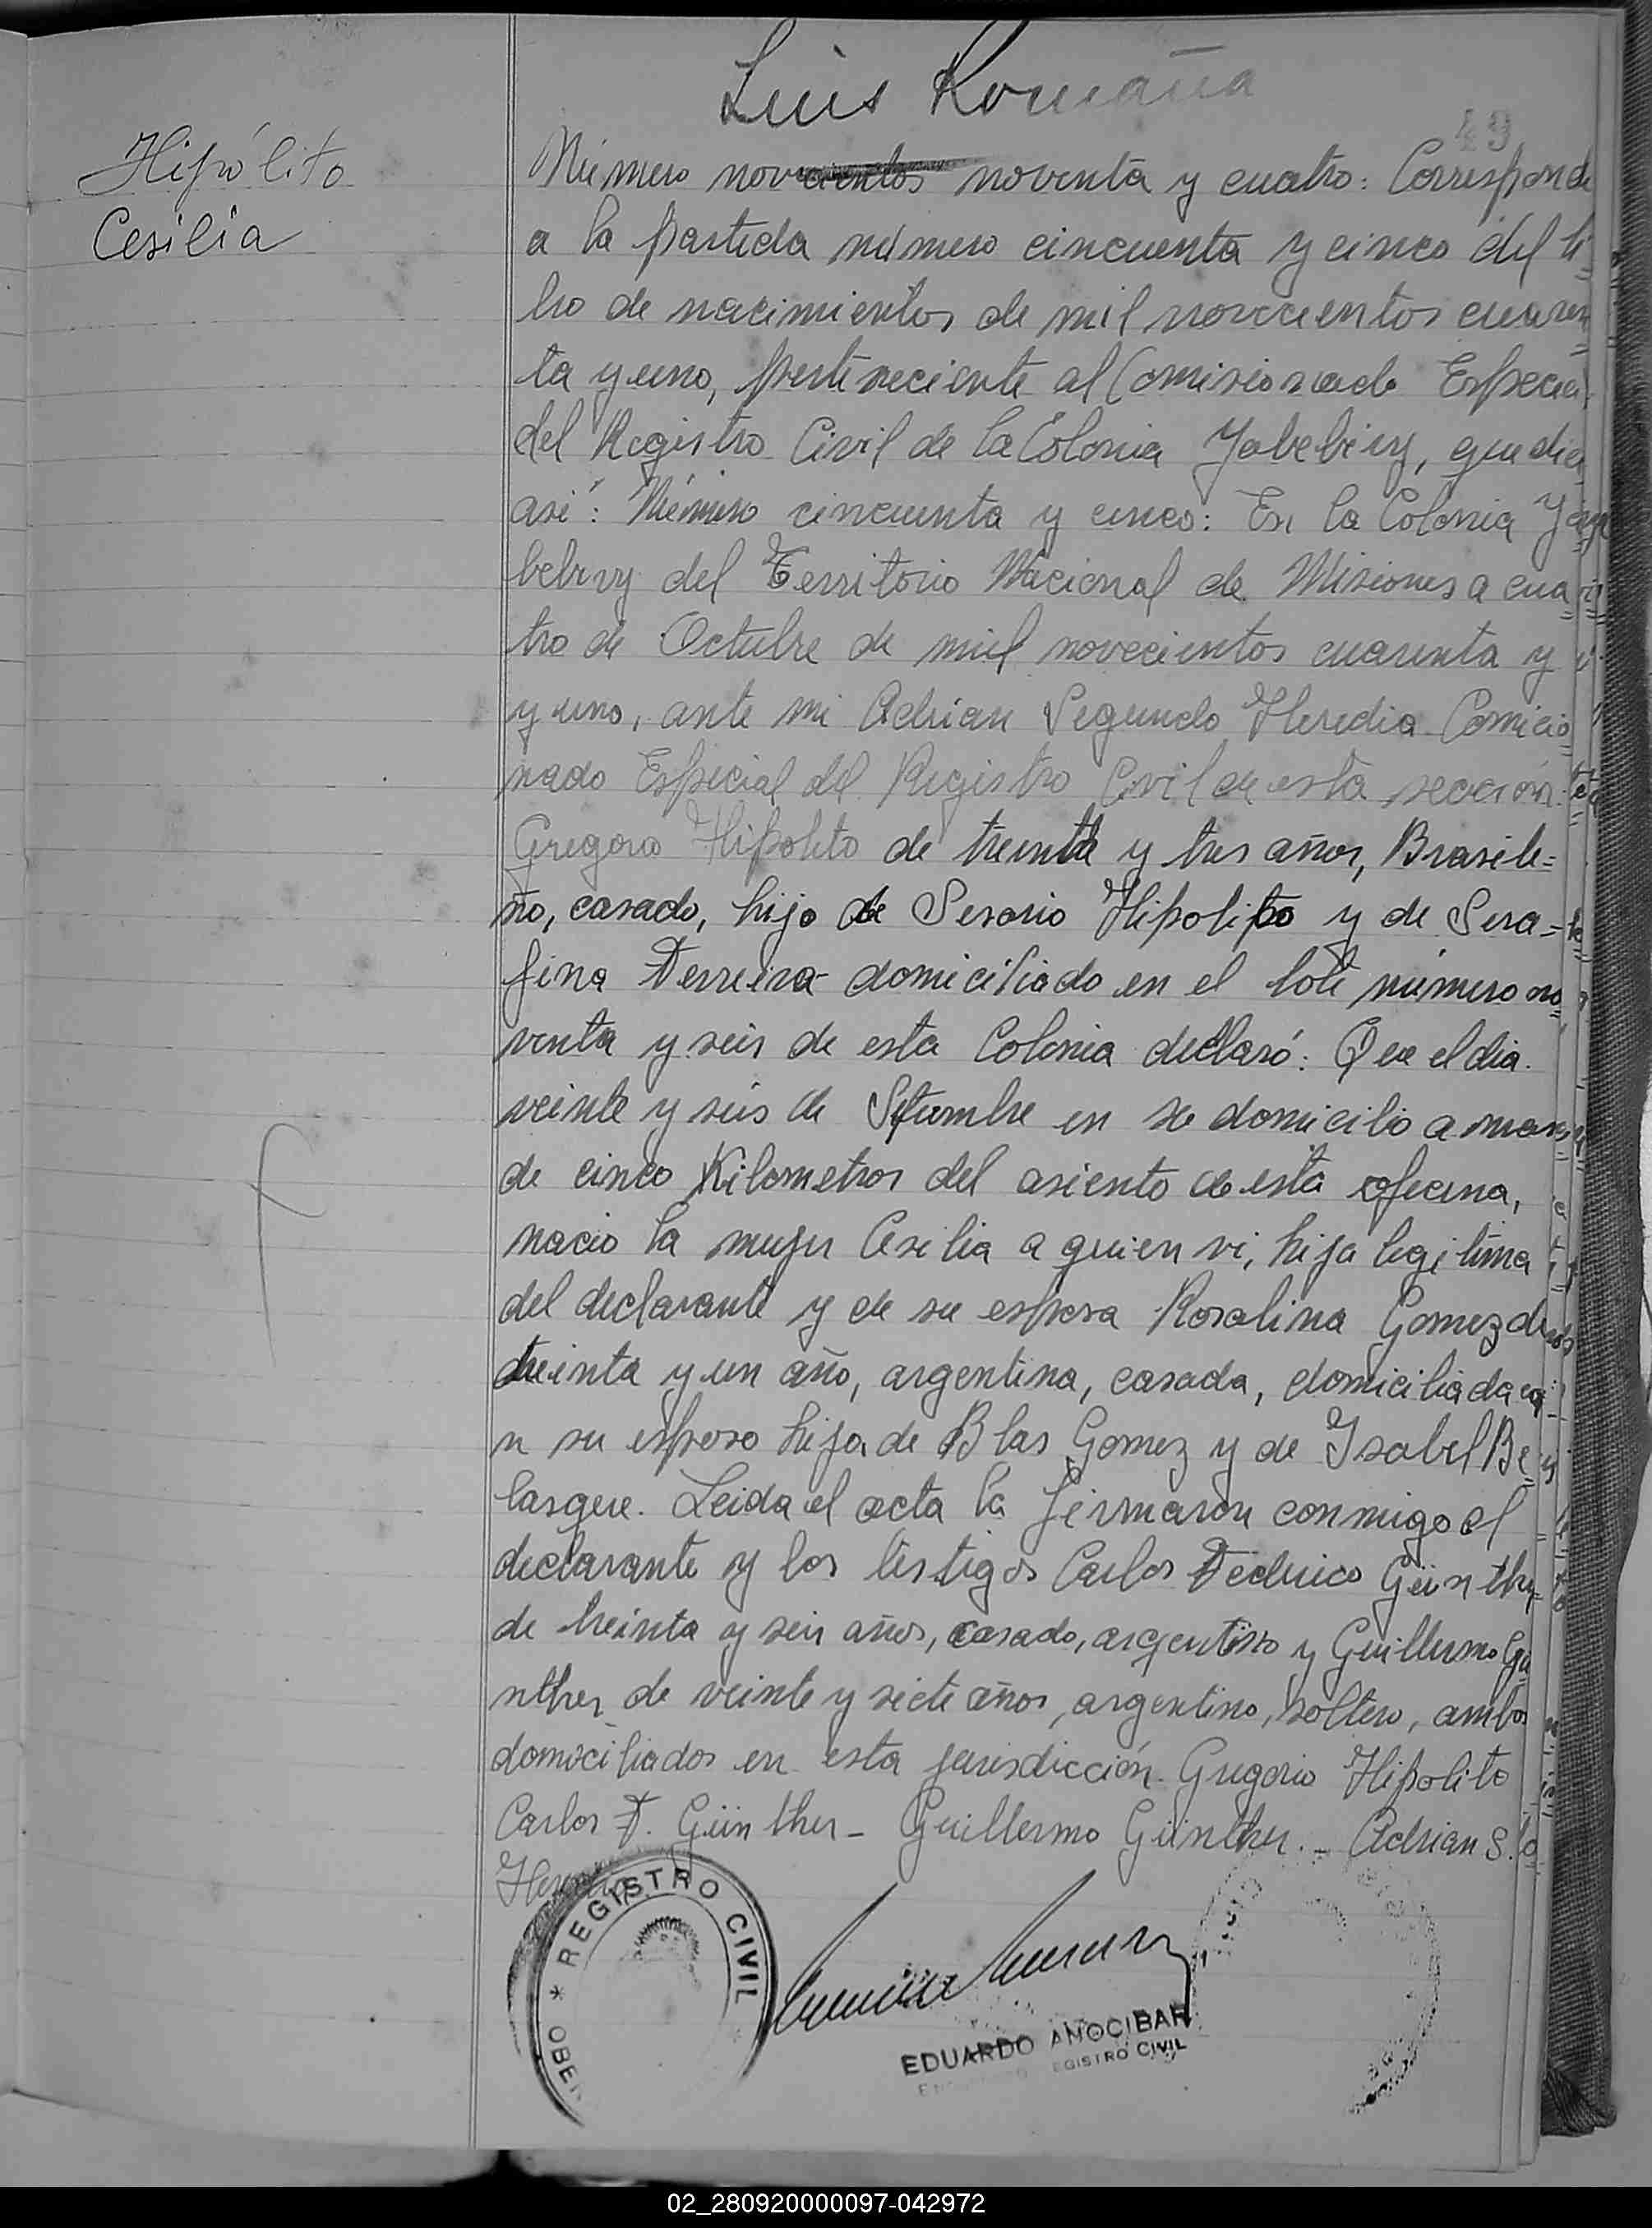 Luis Romaña
49
Hipólito
Cesilia
Número novecientos noventa y cuatro: Corresponde
a la partida número cincuenta y cinco del li=
bro de nacimientos de mil novecientos cuaren=
ta y uno, perteneciente al Comisionado Especial
del Registro Civil de la Colonia Yabebiry, que dice
asi: Número cincuenta y cinco: En la Colonia Ya
bebiry del Territorio Nacional de Misiones a cua=
tro de Octubre de mil novecientos cuarenta y
y uno, ante mi Adrian Segundo Heredia Comicio=
nado Especial del Registro Civil de esta sección:
Gregorio Hipolito de treinta y tres años, Brasile=
ño, casado, hijo de Sesario Hipolito y de Sera=
fina Ferreira domiciliado en el lote número no
venta y seis de esta Colonia declaró: Que el dia
veinte y seis de Setiembre en su domicilio a mas
de cinco Kilometros del asiento de esta oficina,
nacio la mujer Cesilia a quien vi, hija legitima
del declarante y de su esposa Rosalina Gomez de
treinta y un año, argentina, casada, domiciliada co
n su esposo hija de Blas Gomez y de Isabel Be=
lasque. Leida el acta la firmaron conmigo el
declarante y los testigos Carlos Federico Günther
de treinta y seis años, casado, argentino y Guillermo Gü
nther de veinte y siete años, argentino, soltero, ambos
domiciliados en esta jurisdicción. Gregorio Hipolito
Carlos F. Günther - Guillermo Günther. - Adrian S.
Heredia
* REGISTRO CIVIL
OBE
EDUARDO ANOCIBAR
REGISTRO CIVIL
02_280920000097-042972